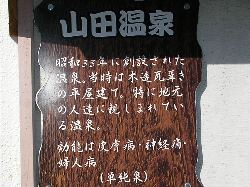 山田温泉
昭和33年に創設された
温泉。当時は木造瓦葺き
の平屋建で、特に地元
の人達に親しまれてい
る温泉。
効能は皮膚病・神経痛・
婦人病
(単純泉)